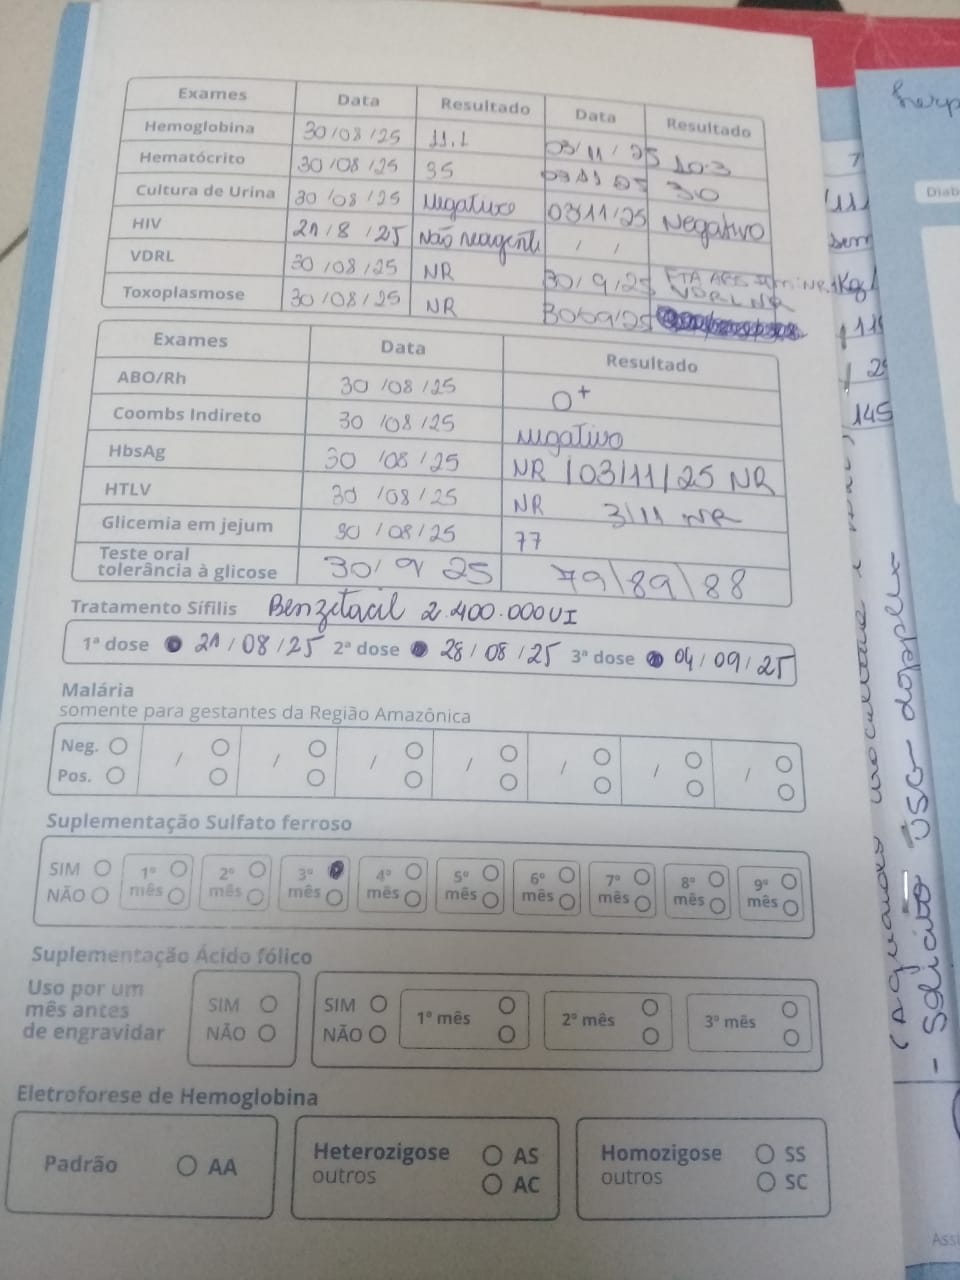 Exames Data Resultado Data Resultado
Hemoglobina 30/08/25 11.1 03/11/25 10.3
Hematócrito 30/08/25 35 03 11 25 30
Cultura de Urina 30/08/25 Negativo 03/11/25 Negativo
HIV 21/8/25 Não reagente / /
VDRL 30/08/25 NR 30/9/25 FTA ABS NR
VDRL NR
Toxoplasmose 30/08/25 NR 30/09/25
Exames Data Resultado
ABO/Rh 30/08/25 O+
Coombs Indireto 30/08/25 negativo
HbsAg 30/08/25 NR /03/11/25 NR
HTLV 30/08/25 NR 3/11 NR
Glicemia em jejum 30/08/25 77
Teste oral
tolerância à glicose 30/9 25 79/89/88
Tratamento Sífilis Benzetacil 2.400.000UI
1ª dose 21/08/25 2ª dose 28/08/25 3ª dose 04/09/25
Malária
somente para gestantes da Região Amazônica
Neg. / / / / / / /
Pos.
Suplementação Sulfato ferroso
SIM 1º 2º 3º 4º 5º 6º 7º 8º 9º
NÃO mês mês mês mês mês mês mês mês mês
Suplementação Ácido fólico
Uso por um
mês antes
de engravidar
SIM
NÃO
SIM
NÃO
1º mês 2º mês 3º mês
Eletroforese de Hemoglobina
Padrão AA
Heterozigose AS
outros AC
Homozigose SS
outros SC
Diab
145
- Solicito USG doppler
(Aguardo
Ass